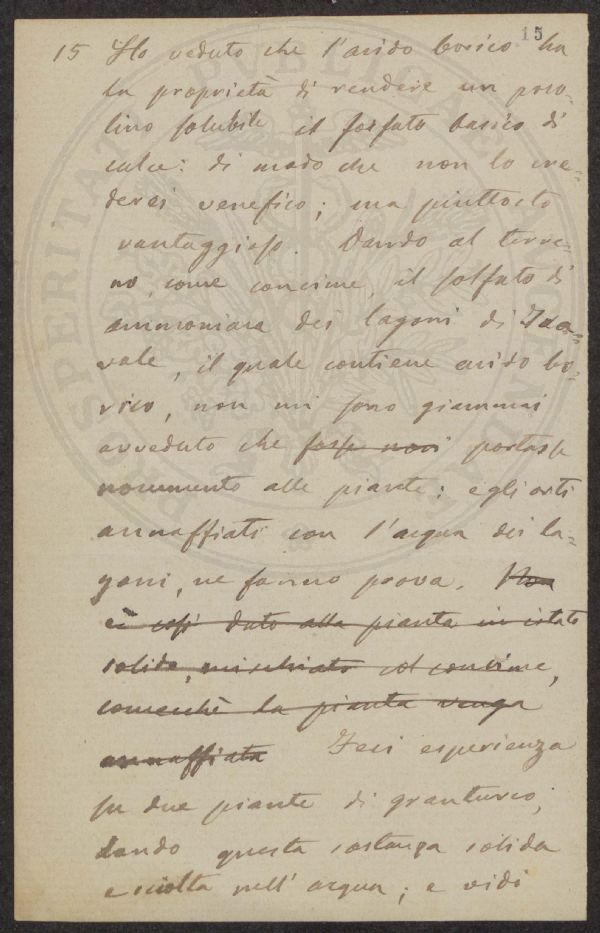 15
15 Ho veduto che l'acido borico ha
la proprietà di rendere un poco-
lino solubile il fosfato basico di
calce: di modo che non lo cre=
derei venefico; ma piuttosto
vantaggioso. Dando al terre=
no, come concime, il solfato di
ammoniaca dei lagoni di Tra=
vale, il quale contiene acido bo=
rico, non mi sono giammai
avveduto che portasse
nocumento alle piante: e gli orti
annaffiati con l'acqua dei la=
goni, ne fanno prova. Non
è così dato alla pianta in istato
solido, mischiato col concime,
comecchè la pianta venga
annaffiata Feci esperienza
su due piante di granturco,
dando questa sostanza solida
e sciolta nell' acqua; e vidi
PROSPERITATI PUBLICAE AUGENDAE